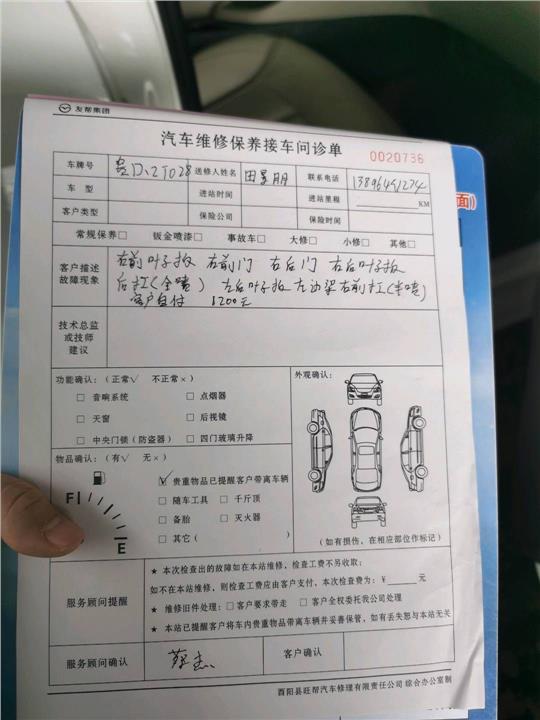 友帮集团
汽车维修保养接车问诊单
0020736
车牌号 送修人姓名 田景朋 联系电话
车型 进站时间 进站里程 KM
客户类型 保险公司 保险时间
常规保养□ 钣金喷漆□ 事故车□ 大修□ 小修□ 其他□
客户描述
故障现象
右前叶子板 右前门 右后门 右后叶子板
后杠(全喷) 左后叶子板 左边梁 右前杠(半喷)
客户自付 1200元
技术总监
或技师
建议
功能确认:(正常√ 不正常×) 外观确认:
□ 音响系统 □ 点烟器
□ 天窗 □ 后视镜
□ 中央门锁(防盗器) □ 四门玻璃升降
物品确认:(有√ 无×)
☑ 贵重物品已提醒客户带离车辆
F □ 随车工具 □ 千斤顶
□ 备胎 □ 灭火器
E □ 其它( )
(如有损伤,在相应部位作标记)
服务顾问提醒
★ 本次检查出的故障如在本站维修,检查工费不另收取;
如不在本站维修,则检查工费应由客户支付,本次检查费为:¥ 元
★ 维修旧件处理:□ 客户要求带走 □ 客户全权委托我公司处理
★ 本站已提醒客户将车内贵重物品带离车辆并妥善保管,如有丢失恕与本站无关
服务顾问确认 蔡杰 客户确认
酉阳县旺帮汽车修理有限责任公司 综合办公室制
面)